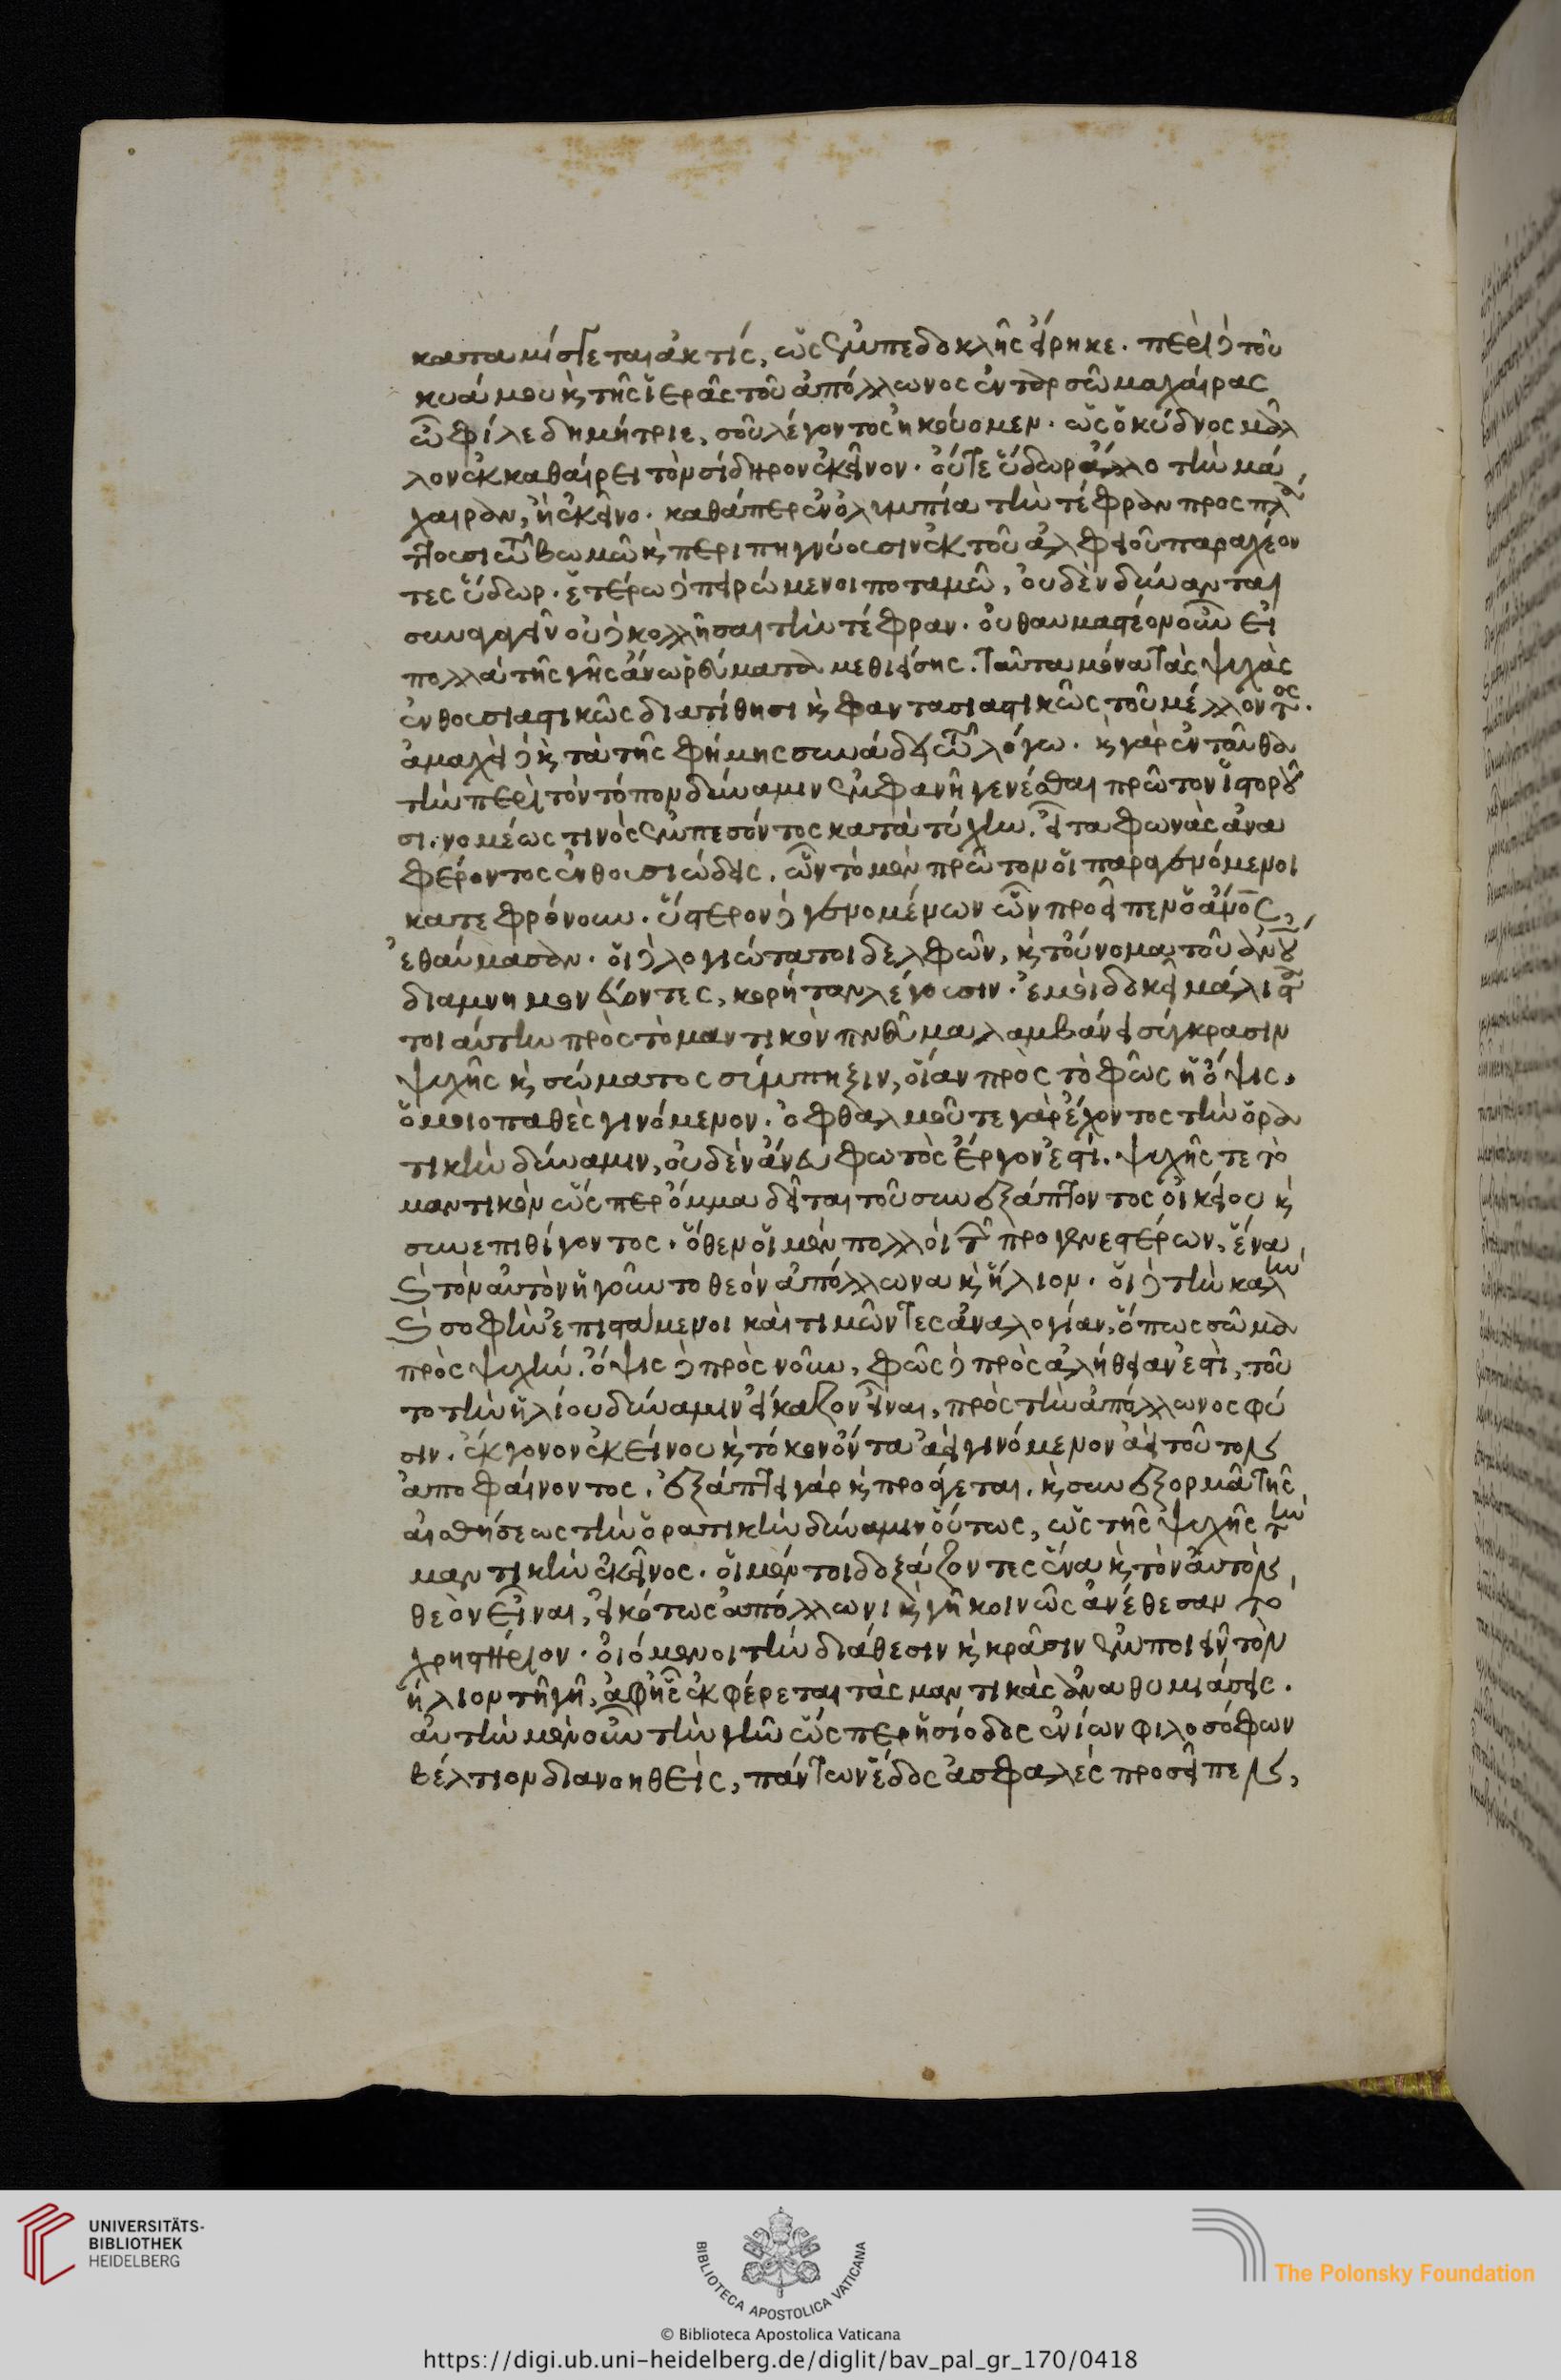 καταμίσγεται ἀκτίς, ὡς ἐμπεδοκλῆς εἴρηκε. περὶ δὲ τοῦ
κυάμου καὶ τῆς ἱερᾶς τοῦ ἀπόλλωνος ἐν ταρσῶ μαχαίρας
ὦ φίλε δημήτριε, σοῦ λέγοντος ἠκούομεν. ὡς ὁ κύδνος μᾶλ
λον ἐκκαθαίρει τὸν σίδηρον ἐκεῖνον. οὔτε ὕδωρ ἄλλο τὴν μά
χαιραν, ἢ ἐκεῖνο. καθάπερ ἐν ὀλυμπία τὴν τέφραν προσπλά
ττουσι τῶ βωμῶ καὶ περιπηγνύουσιν ἐκ τοῦ ἀλφειοῦ παραχέον
τες ὕδωρ. ἑτέρω δὲ πειρώμενοι ποταμῶ, οὐδὲν δύνανται
συναγαγεῖν οὐδὲ κολλῆσαι τὴν τέφραν. οὐ θαυμαστέον οὖν εἰ
πολλὰ τῆς γῆς ἄνω ῥεύματα μεθιείσης. ταῦτα μόνα τὰς ψυχὰς
ἐνθουσιαστικῶς διατίθησι καὶ φαντασιαστικῶς τοῦ μέλλοντος.
ἀμαχεῖ δὲ καὶ τὰ τῆς φήμης συνάδει τῶ λόγω. καὶ γὰρ ἐνταῦθα
τὴν περὶ τὸν τόπον δύναμιν ἐμφανῆ γενέσθαι πρῶτον ἱστοροῦ
σι. νομέως τινὸς ἐμπεσόντος κατὰ τύχην. εἶτα φωνὰς ἀνα
φέροντος ἐνθουσιώδεις. ὧν τὸ μὲν πρῶτον οἱ παραγενόμενοι
κατεφρόνουν. ὕστερον δὲ γενομένων ὧν προεῖπεν ὁ ἄνος,
ἐθαύμασαν. οἱ δὲ λογιώτατοι δελφῶν, καὶ τοὔνομα τοῦ ἀνου
διαμνημονεύοντες, κορήταν λέγουσιν. ἐμοὶ δοκεῖ μάλιστα
τοιαύτην πρὸς τὸ μαντικὸν πνεῦμα λαμβάνει σύγκρασιν
ψυχῆς καὶ σώματος σύμπηξιν, οἵαν πρὸς τὸ φῶς ἡ ὄψις,
ὁμοιοπαθὲς γινόμενον. ὀφθαλμοῦ τε γὰρ ἔχοντος τὴν ὁρα
τικὴν δύναμιν, οὐδὲν ἄνευ φωτὸς ἔργον ἐστί. ψυχῆς τε τὸ
μαντικὸν ὥσπερ ὄμμα δεῖται τοῦ συνεξάπτοντος οἰκείου καὶ
συνεπιθίγοντος. ὅθεν οἱ μὲν πολλοὶ τῶν προγενεστέρων, ἕνα
καὶ τὸν αὐτὸν ἡγοῦντο θεὸν ἀπόλλωνα καὶ ἥλιον. οἱ δὲ τὴν καλὴν
καὶ σοφὴν ἐπιστάμενοι καὶ τιμῶντες ἀναλογίαν, ὅπως σῶμα
πρὸς ψυχήν. ὄψις δὲ πρὸς νοῦν, φῶς δὲ πρὸς ἀλήθειαν ἐστὶ, τοῦ
το τὴν ἡλίου δύναμιν εἴκαζον εἶναι, πρὸς τὴν ἀπόλλωνος φύ
σιν. ἔκγονον ἐκείνου καὶ τόκον ὄντα ἀεὶ γινόμενον ἀεὶ τοῦτον
ἀποφαίνοντος. ἐξάπτει γὰρ καὶ προάγεται. καὶ συνεξορμᾶ τῆς
αἰσθήσεως τὴν ὁρατικὴν δύναμιν οὕτως, ὡς τῆς ψυχῆς τὴν
μαντικὴν ἐκεῖνος. οἱ μέντοι δοξάζοντες ἕνα καὶ τὸν αὐτὸν
θεὸν εἶναι, εἰκότως ἀπόλλωνι καὶ γῆ κοινῶς ἀνέθεσαν τὸ
χρηστήριον. οἰόμενοι τὴν διάθεσιν καὶ κρᾶσιν ἐμποιεῖν τὸν
ἥλιον τῆ γῆ, ἀφ' ἧς ἐκφέρεται τὰς μαντικὰς ἀναθυμιάσεις.
αὐτὴν μὲν οὖν τὴν γῆν ὥσπερ ἡσίοδος ἐνίων φιλοσόφων
βέλτιον διανοηθεὶς, πάντων ἕδος ἀσφαλὲς προσεῖπεν,
UNIVERSITÄTS-
BIBLIOTHEK
HEIDELBERG
BIBLIOTECA APOSTOLICA VATICANA
The Polonsky Foundation
© Biblioteca Apostolica Vaticana
https://digi.ub.uni-heidelberg.de/diglit/bav_pal_gr_170/0418